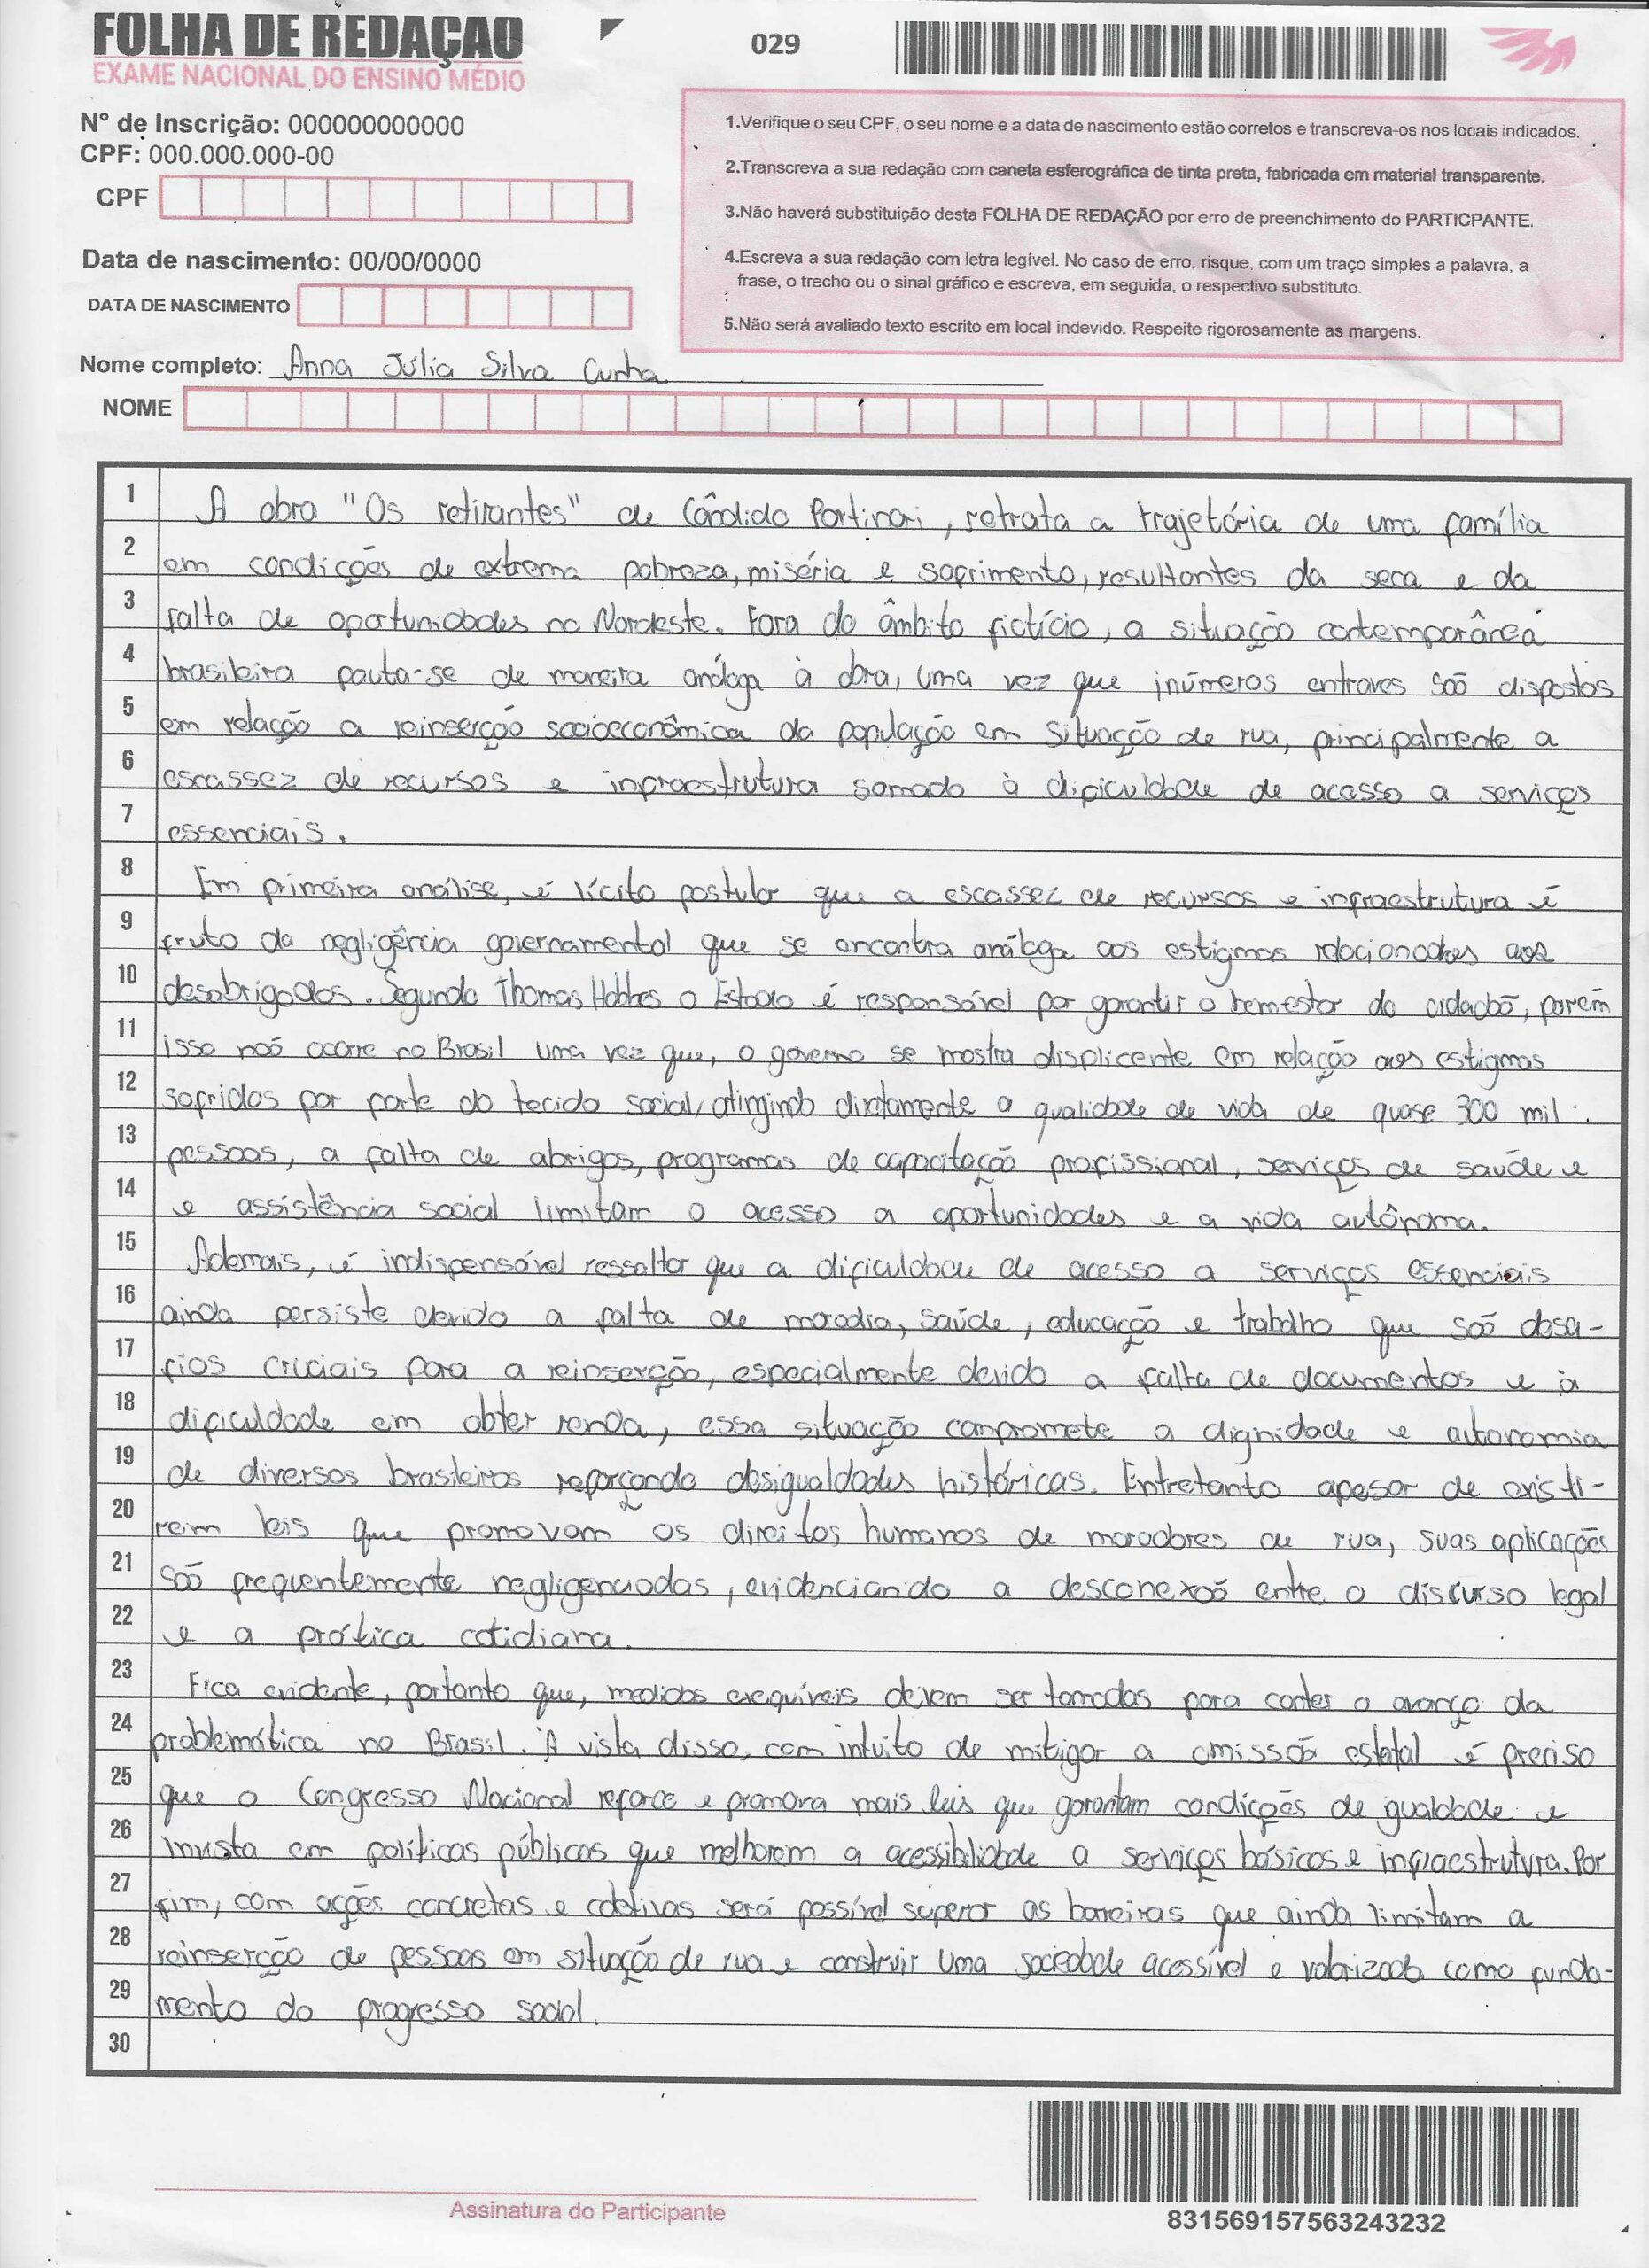 FOLHA DE REDAÇAO
EXAME NACIONAL DO ENSINO MÉDIO
029
N° de Inscrição: 000000000000
CPF: 000.000.000-00
CPF
Data de nascimento: 00/00/0000
DATA DE NASCIMENTO
1.Verifique o seu CPF, o seu nome e a data de nascimento estão corretos e transcreva-os nos locais indicados.
2.Transcreva a sua redação com caneta esferográfica de tinta preta, fabricada em material transparente.
3.Não haverá substituição desta FOLHA DE REDAÇÃO por erro de preenchimento do PARTICPANTE.
4.Escreva a sua redação com letra legível. No caso de erro, risque, com um traço simples a palavra, a
frase, o trecho ou o sinal gráfico e escreva, em seguida, o respectivo substituto.
5.Não será avaliado texto escrito em local indevido. Respeite rigorosamente as margens.
Nome completo: Anna Júlia Silva Cunha
NOME
1 A obra "Os retirantes" de Cândido Portinari, retrata a trajetória de uma família
2 em condições de extrema pobreza, miséria e sofrimento, resultantes da seca e da
3 falta de oportunidades no Nordeste. Fora do âmbito fictício, a situação contemporânea
4 brasileira pauta-se de maneira análoga à obra, uma vez que inúmeros entraves são dispostos
5 em relação a reinserção socioeconômica da população em situação de rua, principalmente a
6 escassez de recursos e infraestrutura somado à dificuldade de acesso a serviços
7 essenciais.
8 Em primeira análise, é lícito postular que a escassez de recursos e infraestrutura é
9 fruto da negligência governamental que se encontra análoga aos estigmas relacionados aos
10 desabrigados. Segundo Thomas Hobbes o Estado é responsável por garantir o bem estar do cidadão, porém
11 isso não ocorre no Brasil uma vez que, o governo se mostra displicente em relação aos estigmas
12 sofridos por parte do tecido social, atingindo diretamente a qualidade de vida de quase 300 mil
13 pessoas, a falta de abrigos, programas de capacitação profissional, serviços de saúde e
14 e assistência social limitam o acesso a oportunidades e a vida autônoma.
15 Ademais, é indispensável ressaltar que a dificuldade de acesso a serviços essenciais
16 ainda persiste devido a falta de moradia, saúde, educação e trabalho que são desa-
17 fios cruciais para a reinserção, especialmente devido a falta de documentos e à
18 dificuldade em obter renda, essa situação compromete a dignidade e autonomia
19 de diversos brasileiros reforçando desigualdades históricas. Entretanto apesar de existi-
20 rem leis que promovam os direitos humanos de moradores de rua, suas aplicações
21 são frequentemente negligenciadas, evidenciando a desconexão entre o discurso legal
22 e a prática cotidiana.
23 Fica evidente, portanto que, medidas exequíveis devem ser tomadas para conter o avanço da
24 problemática no Brasil. À vista disso, com intuito de mitigar a omissão estatal é preciso
25 que o Congresso Nacional reforce e promova mais leis que garantam condições de igualdade e
26 invista em políticas públicas que melhorem a acessibilidade a serviços básicos e infraestrutura. Por
27 fim, com ações concretas e coletivas será possível superar as barreiras que ainda limitam a
28 reinserção de pessoas em situação de rua e construir uma sociedade acessível e valorizada como funda-
29 mento do progresso social.
30
Assinatura do Participante
831569157563243232